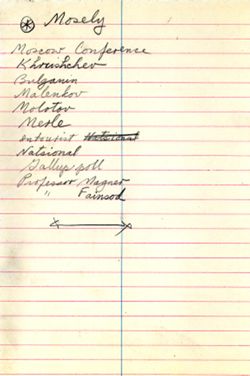 Mosely
Moscow Conference
Khrushchev
Bulganin
Malenkov
Molotov
Merle
intourist Natsional
Natsional
Gallup poll
Professor Magner
" Fainsod